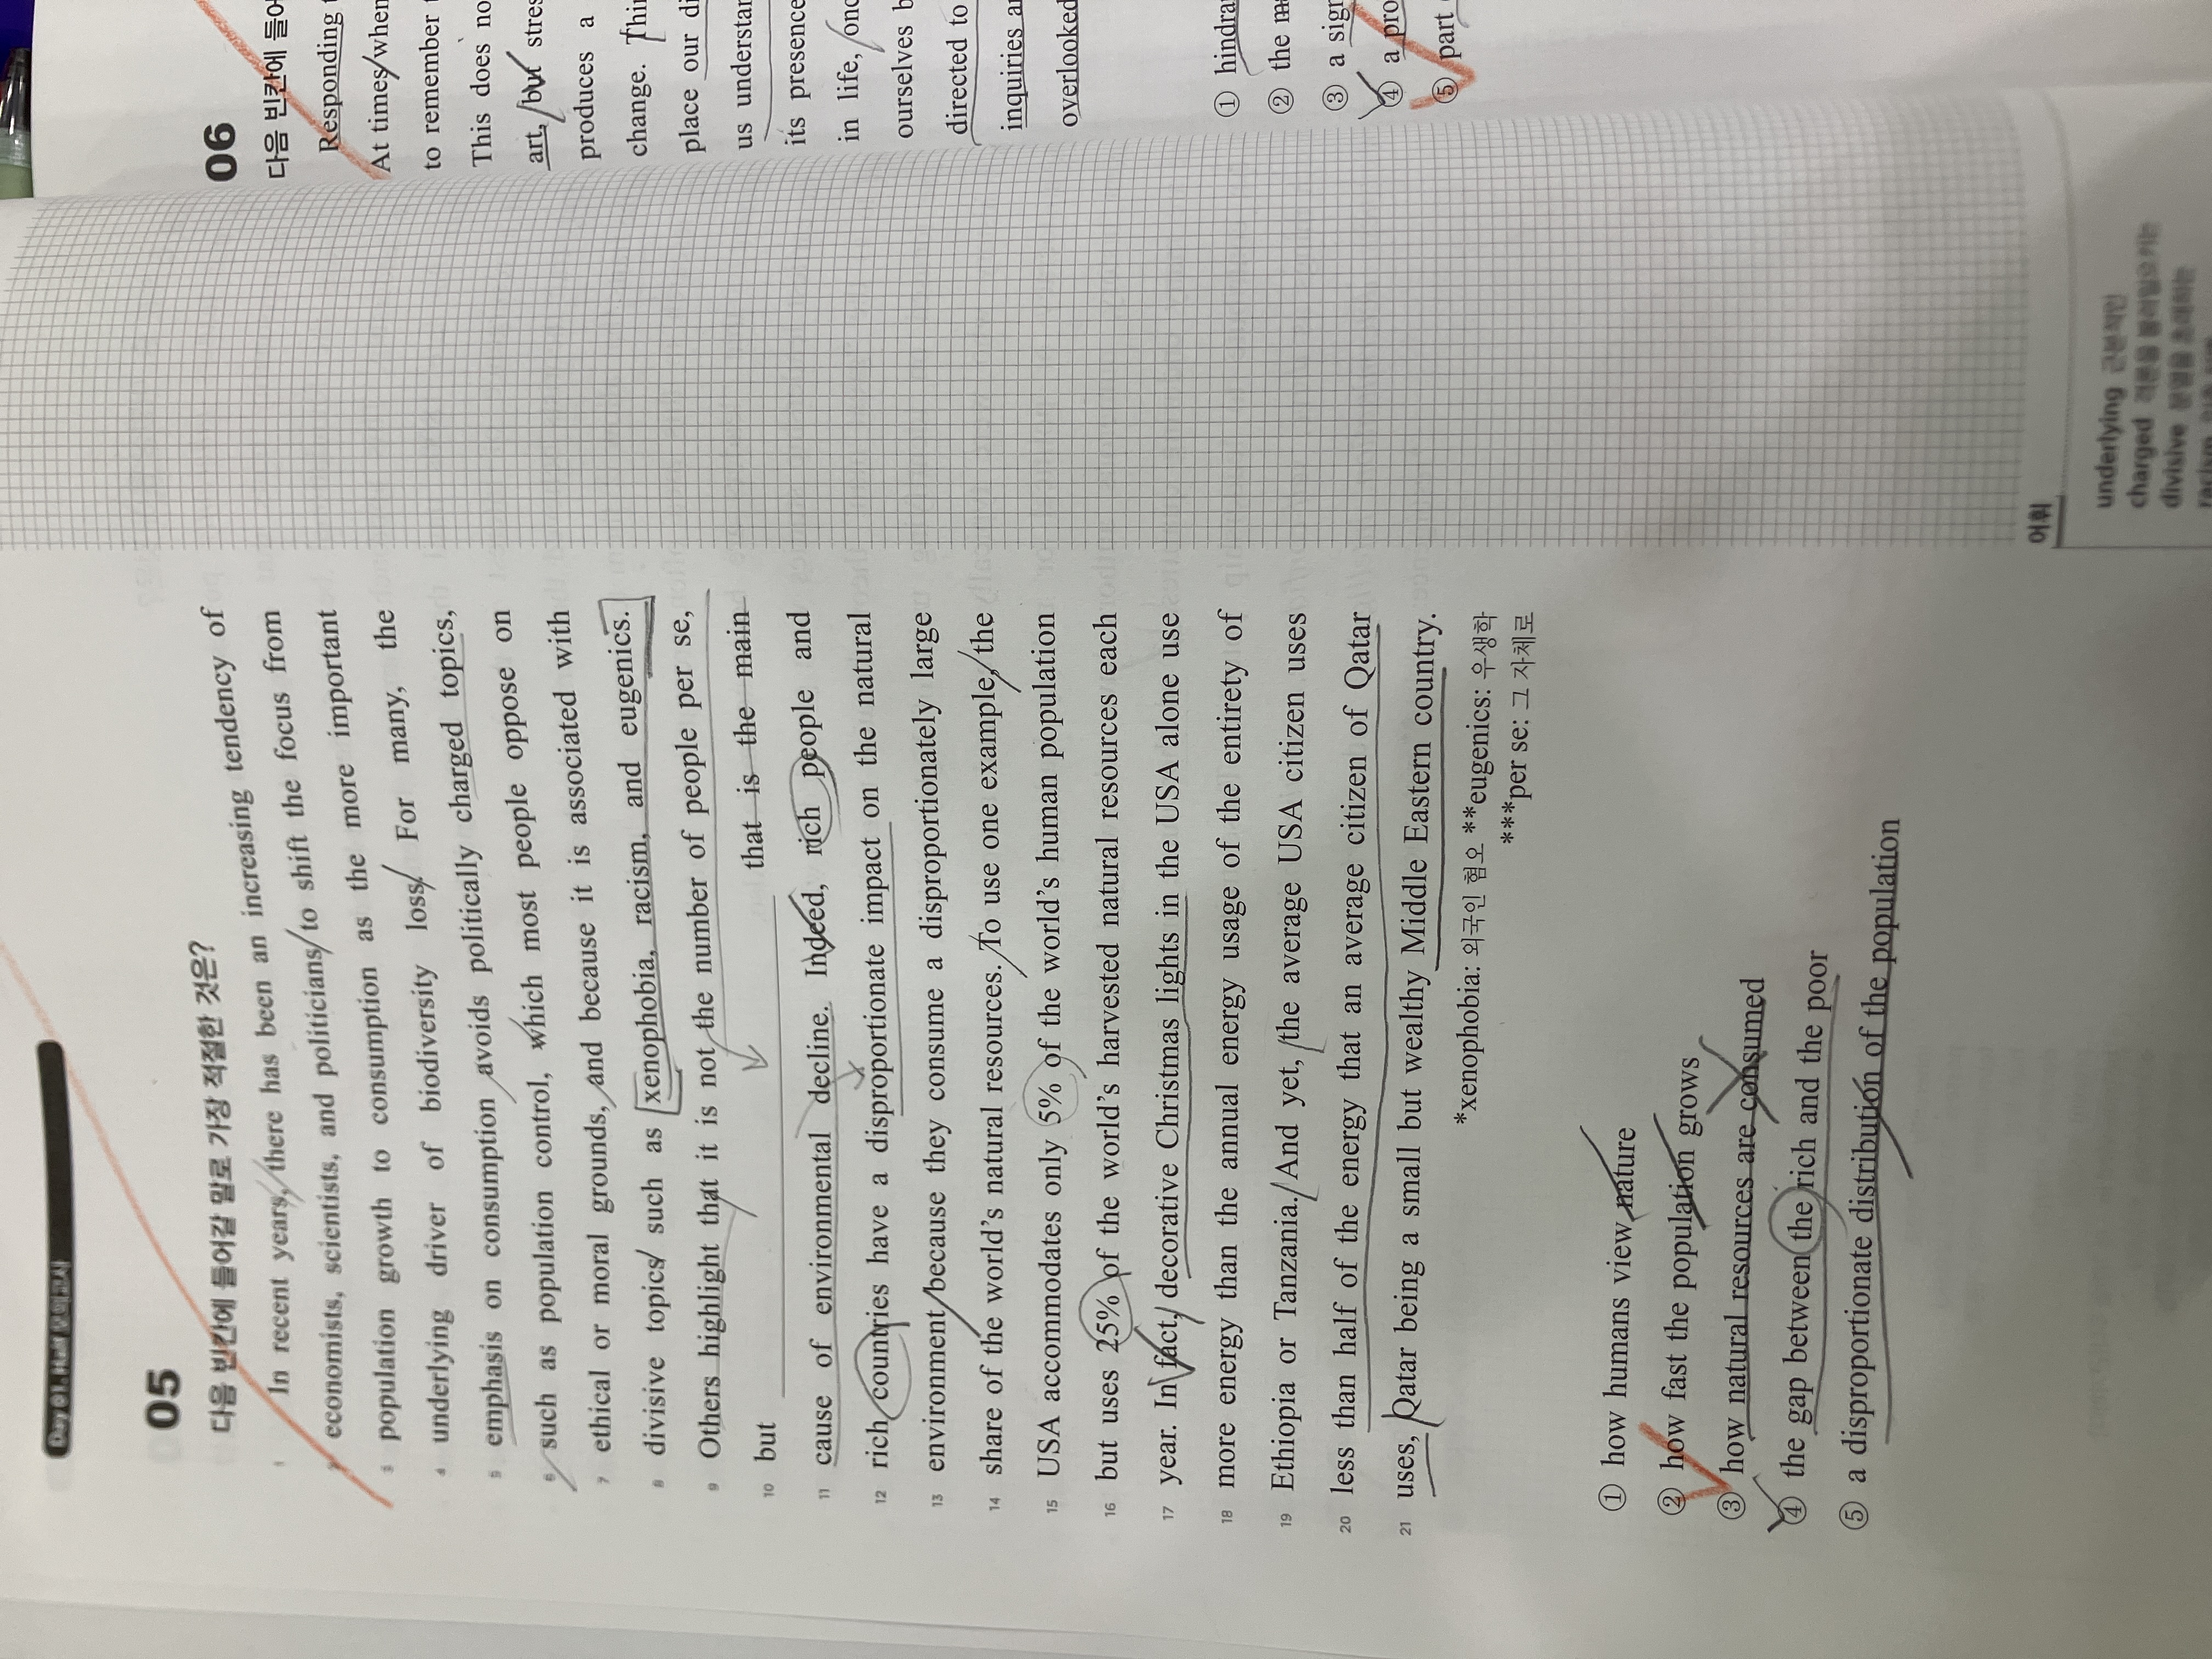 05
다음 빈칸에 들어갈 말로 가장 적절한 것은?
1 In recent years, there has been an increasing tendency of
2 economists, scientists, and politicians to shift the focus from
3 population growth to consumption as the more important
4 underlying driver of biodiversity loss. For many, the
5 emphasis on consumption avoids politically charged topics,
6 such as population control, which most people oppose on
7 ethical or moral grounds, and because it is associated with
8 divisive topics such as xenophobia, racism, and eugenics.
9 Others highlight that it is not the number of people per se,
10 but ______ that is the main
11 cause of environmental decline. Indeed, rich people and
12 rich countries have a disproportionate impact on the natural
13 environment because they consume a disproportionately large
14 share of the world's natural resources. To use one example, the
15 USA accommodates only 5% of the world's human population
16 but uses 25% of the world's harvested natural resources each
17 year. In fact, decorative Christmas lights in the USA alone use
18 more energy than the annual energy usage of the entirety of
19 Ethiopia or Tanzania. And yet, the average USA citizen uses
20 less than half of the energy that an average citizen of Qatar
21 uses, Qatar being a small but wealthy Middle Eastern country.
*xenophobia: 외국인 혐오 **eugenics: 우생학
***per se: 그 자체로
① how humans view nature
② how fast the population grows
③ how natural resources are consumed
④ the gap between the rich and the poor
⑤ a disproportionate distribution of the population
어휘
underlying 근본적인
charged
divisive
06
다음 빈칸에 들어
Responding
At times when
to remember
This does no
art, but stres
produces a
change. Thin
place our di
us understan
its presence
in life, onc
ourselves b
directed to
inquiries a
overlooked
① hindra
② the m
③ a sign
④ a pro
⑤ part